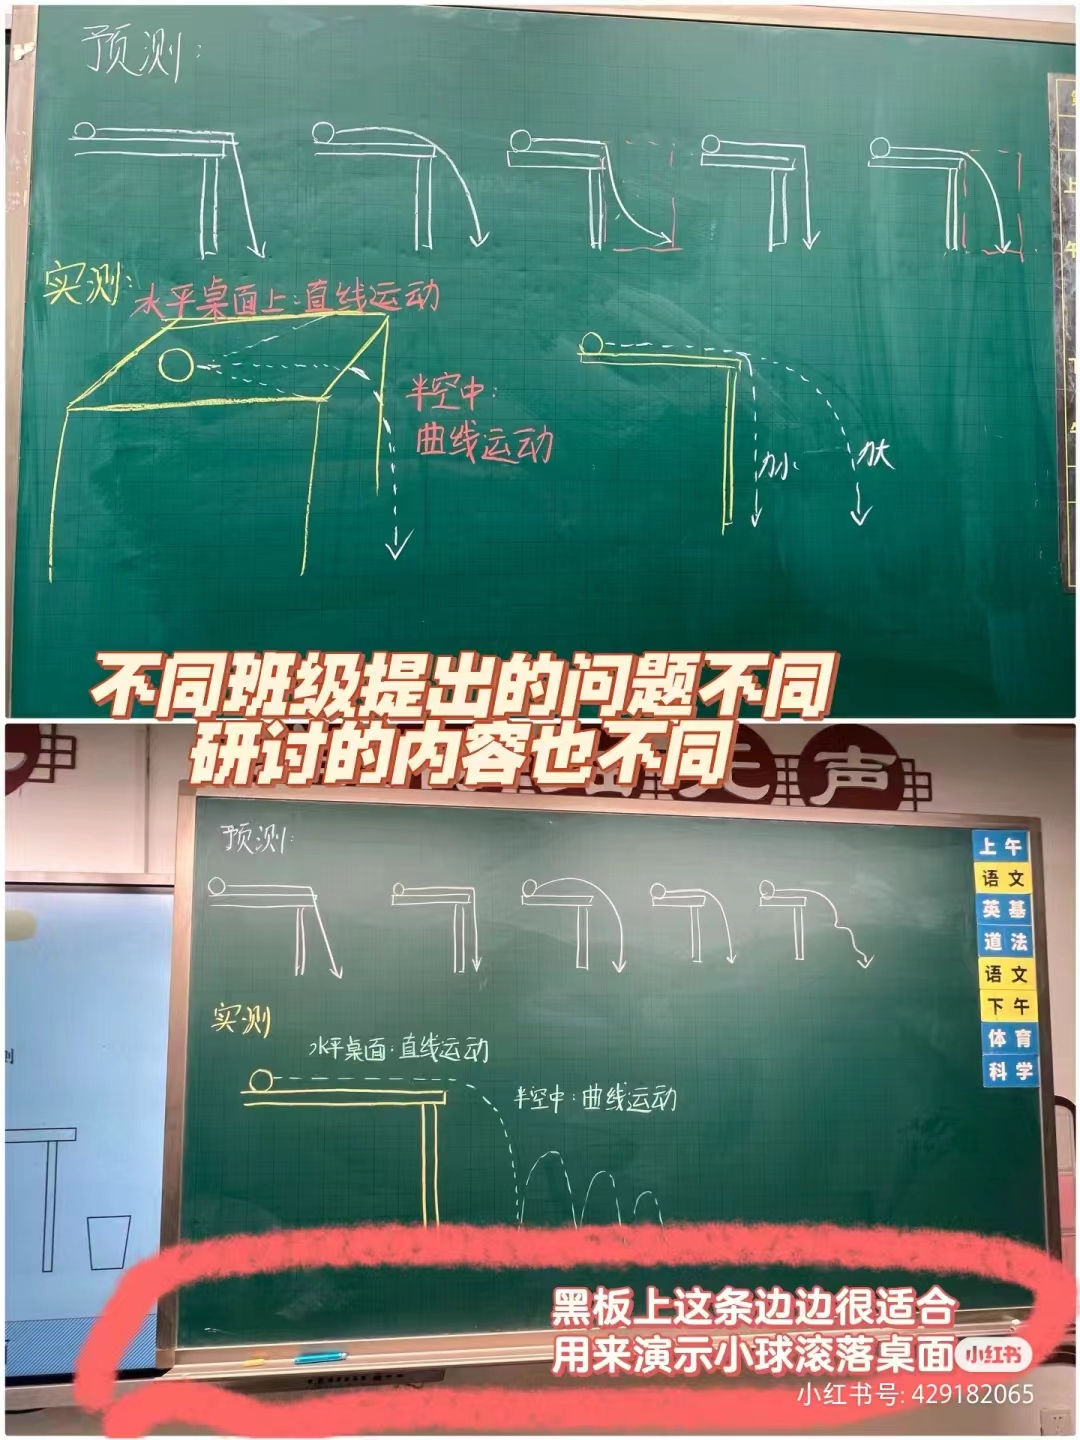 预测:
实测:
水平桌面上:直线运动
半空中:
曲线运动
力小
力大
上
午
不同班级提出的问题不同
研讨的内容也不同
无声
预测:
上午
语文
英基
道法
语文
下午
体育
科学
实测
水平桌面:直线运动
半空中:曲线运动
黑板上这条边边很适合
用来演示小球滚落桌面
小红书
小红书号: 429182065